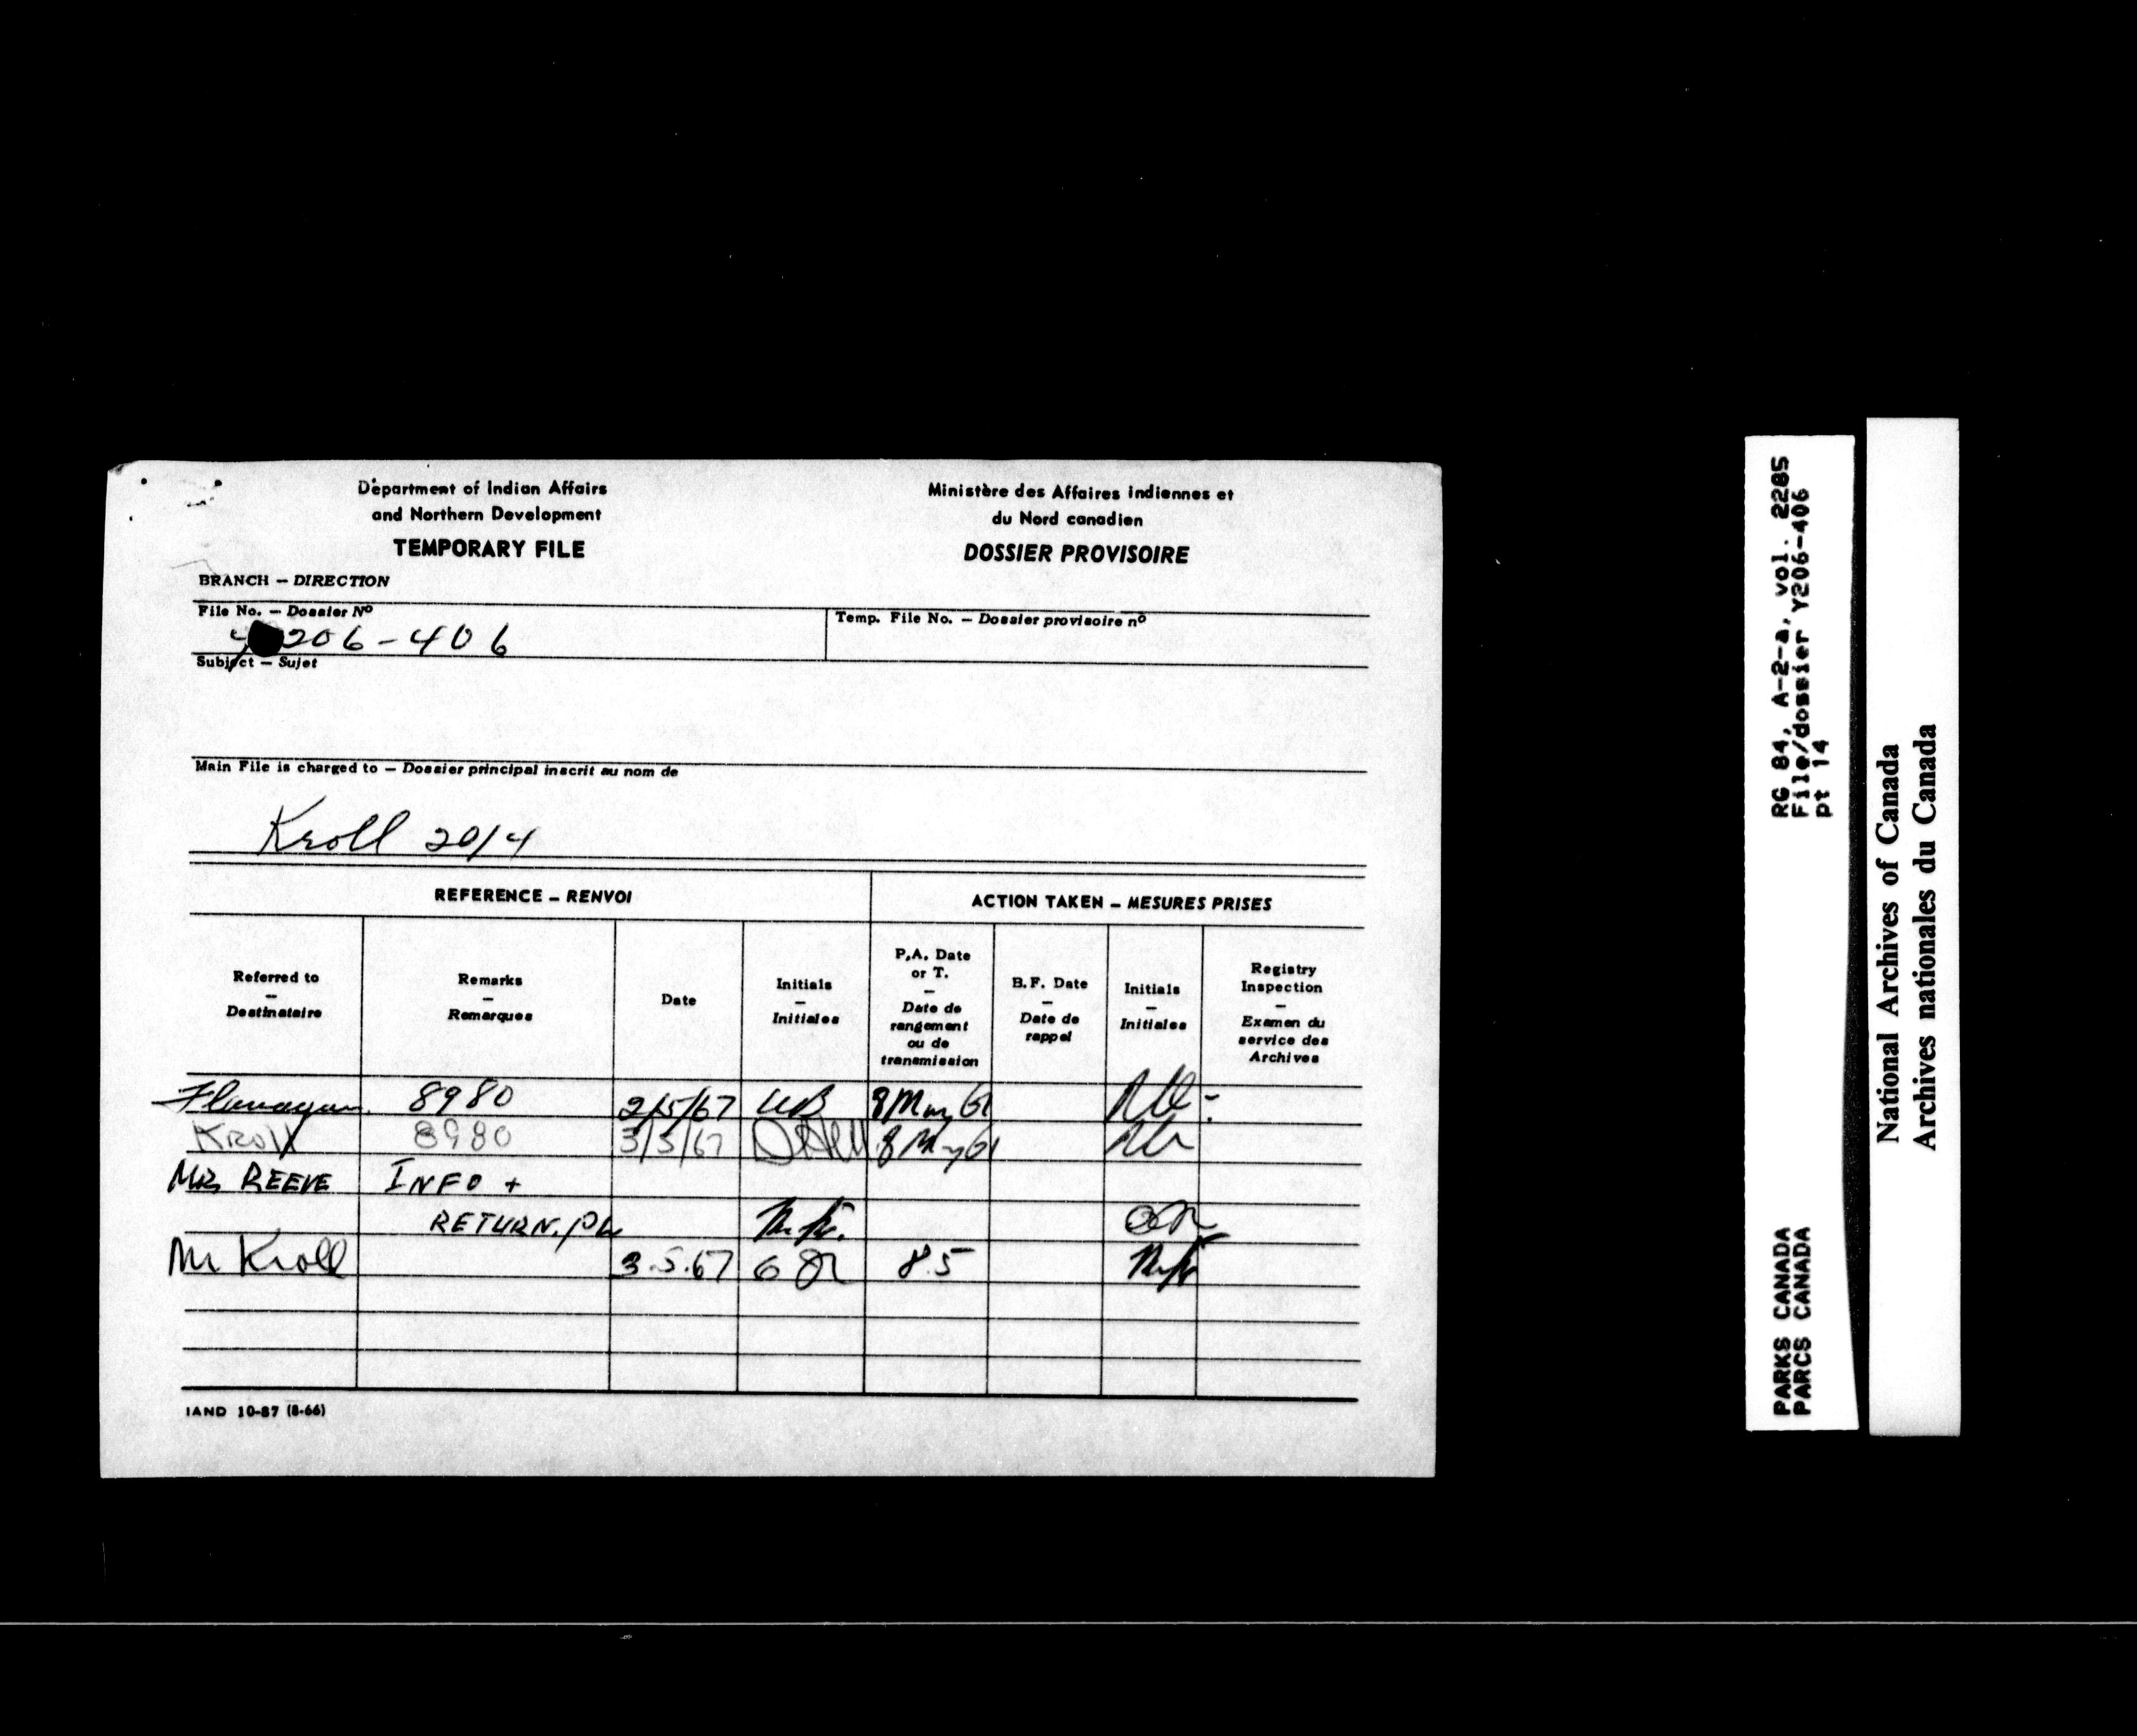 Department of Indian Affairs
and Northern Development
TEMPORARY FILE
Ministère des Affaires indiennes et
du Nord canadien
DOSSIER PROVISOIRE
BRANCH – DIRECTION
File No. – Dossier Nº
Y 206-406
Temp. File No. – Dossier provisoire nº
Subject – Sujet
Main File is charged to – Dossier principal inscrit au nom de
Kroll 20/4
REFERENCE – RENVOI
ACTION TAKEN – MESURES PRISES
Referred to – Destinataire
Remarks – Remarques
Date
Initials – Initiales
P.A. Date or T. – Date de rangement ou de transmission
B.F. Date – Date de rappel
Initials – Initiales
Registry Inspection – Examen du service des Archives
Flanagan 8980 2/5/67 8 May
Kroll 8980 3/5/67 8 May
MR REEVE INFO +
RETURN. Pls
Mr Kroll 3.5.67 8.5
IAND 10-87 (8-66)
RG 84, A-2-a, vol. 2285
File/dossier Y206-406
pt 14
PARKS CANADA
PARCS CANADA
National Archives of Canada
Archives nationales du Canada